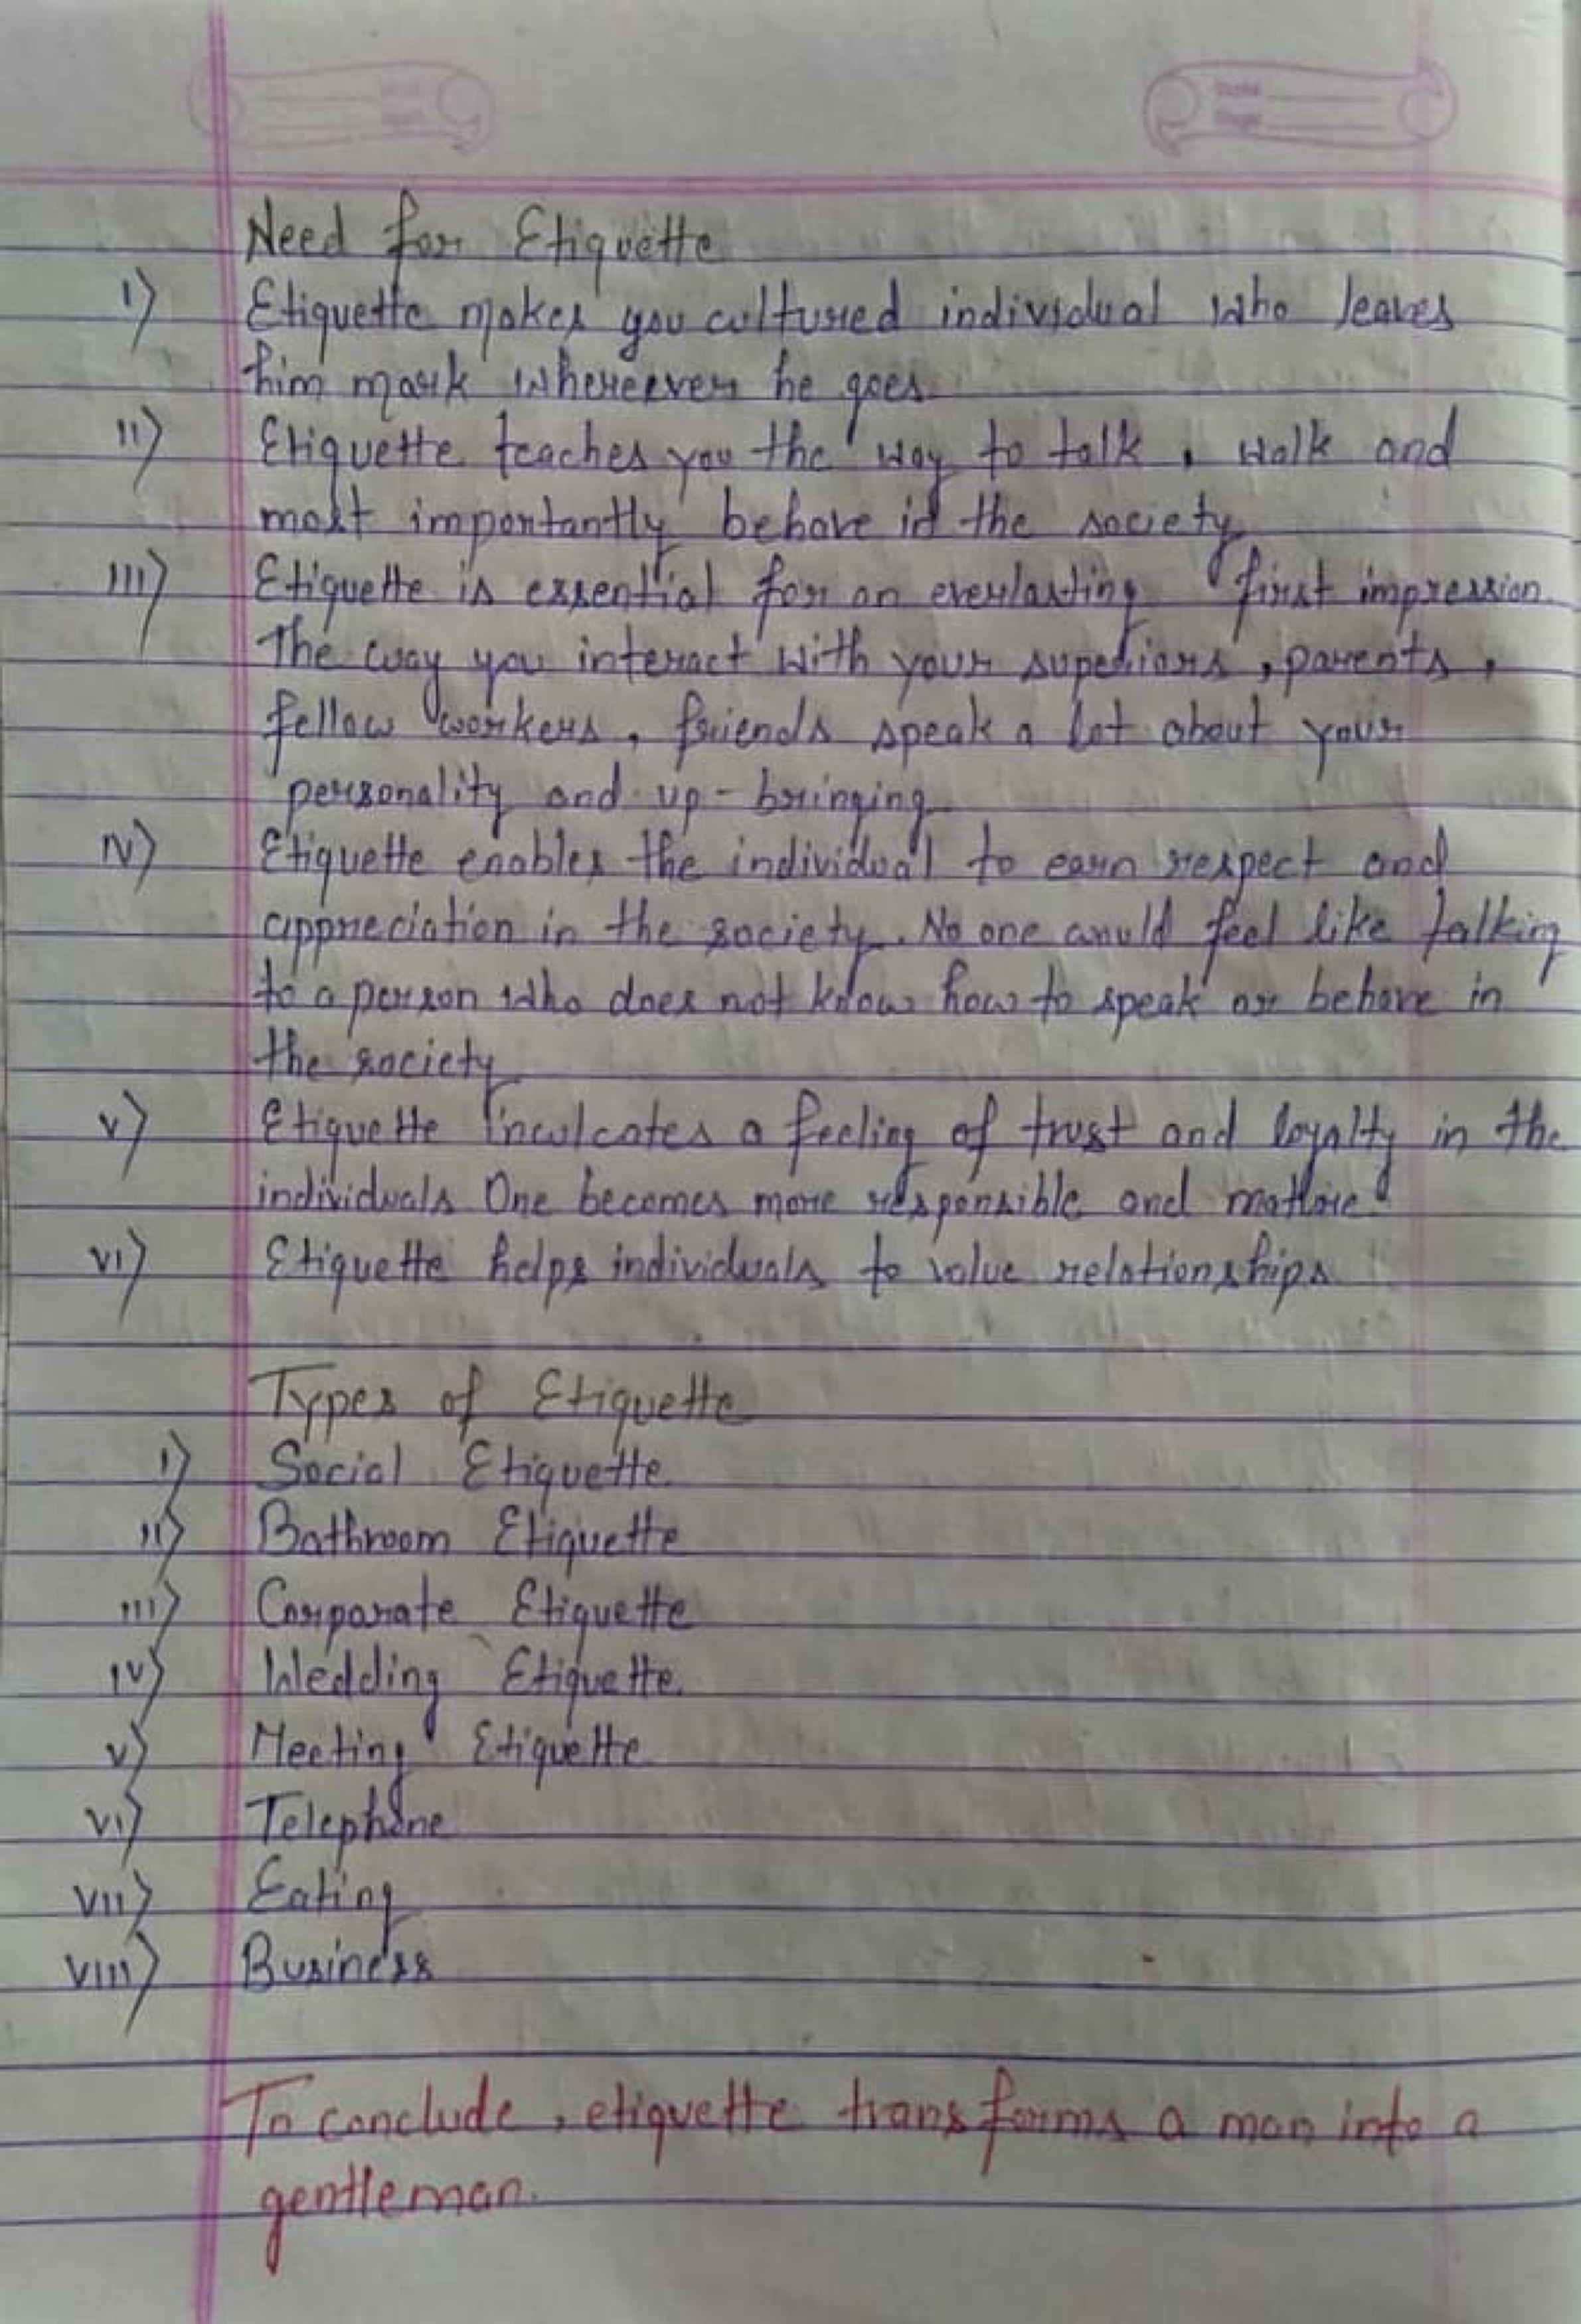 Need for Etiquette
I) Etiquette makes you cultured individual who leaves
him mark whereever he goes
II) Etiquette teaches you the way to talk, walk and
most importantly behave in the society
III) Etiquette is essential for an everlasting first impression.
The way you interact with your superiors, parents,
fellow workers, friends speak a lot about your
personality and up-bringing
IV) Etiquette enables the individual to earn respect and
appreciation in the society. No one would feel like talking
to a person who does not know how to speak or behave in
the society
V) Etiquette inculcates a feeling of trust and loyalty in the
individuals One becomes more responsible and mature.
VI) Etiquette helps individuals to value relationships
Types of Etiquette
I) Social Etiquette
II) Bathroom Etiquette
III) Corporate Etiquette
IV) Wedding Etiquette
V) Meeting Etiquette
VI) Telephone
VII) Eating
VIII) Business
To conclude, etiquette transforms a man into a
gentleman.